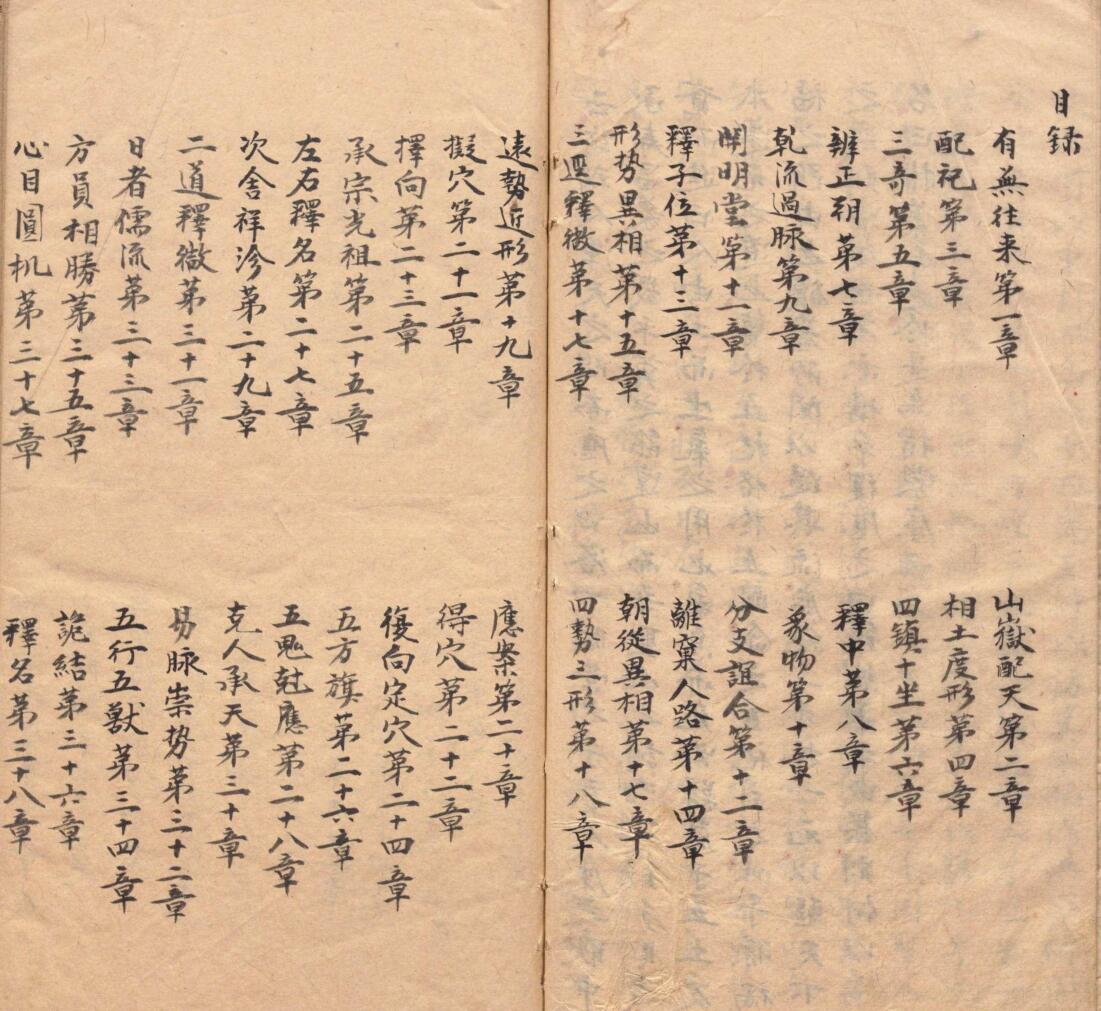 目録
有無往来第一章
山嶽配天第二章
配祀第三章
相土度形第四章
三奇第五章
四鎮十坐第六章
辨正朝第七章
釋中第八章
乾流過脉第九章
象物第十章
開明堂第十一章
分支誼合第十二章
釋子位第十三章
離窠人路第十四章
形势異相第十五章
朝從異相第十七章
三逕釋微第十七章
四勢三形第十八章
遠勢近形第十九章
應案第二十章
擬穴第二十一章
得穴第二十二章
擇向第二十三章
復向定穴第二十四章
承宗光祖第二十五章
五方旗第二十六章
左右釋名第二十七章
五鬼尅應第二十八章
次舍祥沴第二十九章
克人承天第三十章
二道釋微第三十一章
易脉崇势第三十二章
日者儒流第三十三章
五行五獸第三十四章
方員相勝第三十五章
詭結第三十六章
心目圓机第三十七章
釋名第三十八章